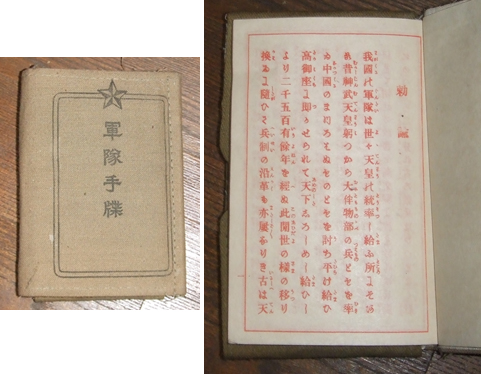 軍隊手牒
勅諭
我國の軍隊は世々天皇の統率し給ふ所にそあ
る昔神武天皇躬つから大伴物部の兵ともを率
ゐ中國のまつろはぬものともを討ち平け給ひ
高御座に即かせられて天下しろしめし給ひし
より二千五百有餘年を經ぬ此間世の樣の移り
換るに隨ひて兵制の沿革も亦屢なりき古は天